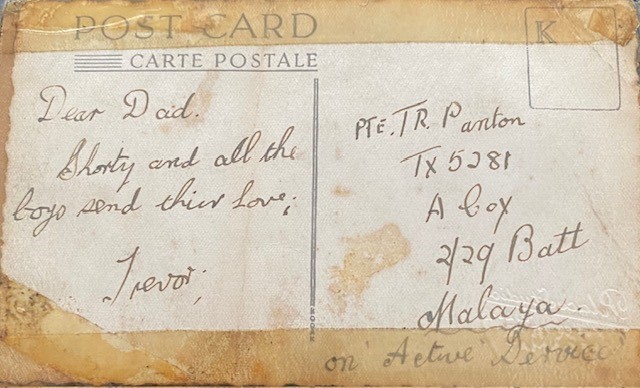 POST CARD
CARTE POSTALE
K
Dear Dad.
Shorty and all the
boys send thier Love;
Trevor;
PTE. T.R. Panton
TX 5281
A Coy
2/29 Batt
Malaya.
on Active Service